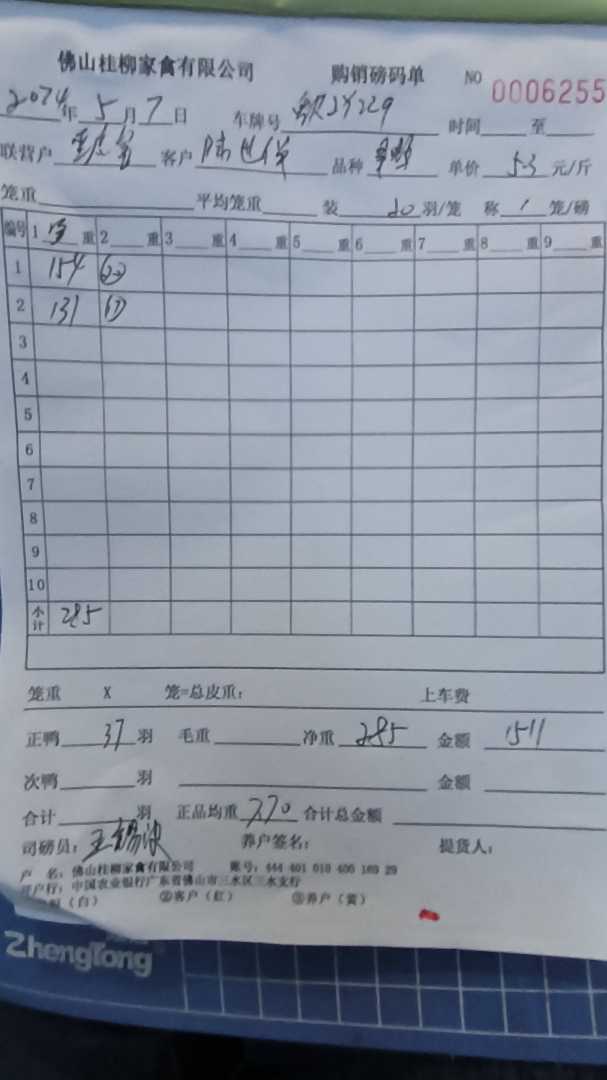 佛山桂柳家禽有限公司 购销磅码单 NO 0006255
2024年5月7日 车牌号 时间 至
联营户 客户 品种 单价 5.3 元/斤
笼重 平均笼重 装 20 羽/笼 称 1 笼/磅
编号 1 重 2 重 3 重 4 重 5 重 6 重 7 重 8 重 9 重
1 154 (20)
2 131 (17)
3
4
5
6
7
8
9
10
小计 285
笼重 X 笼=总皮重: 上车费
正鸭 37 羽 毛重 净重 285 金额 1511
次鸭 羽 金额
合计 羽 正品均重 7.70 合计总金额
司磅员: 养户签名: 提货人:
户 名: 佛山桂柳家禽有限公司 账号: 444 401 010 400 169 29
开户行: 中国农业银行广东省佛山市三水区三水支行
(白) ②客户(红) ③养户(黄)
ZhengTong